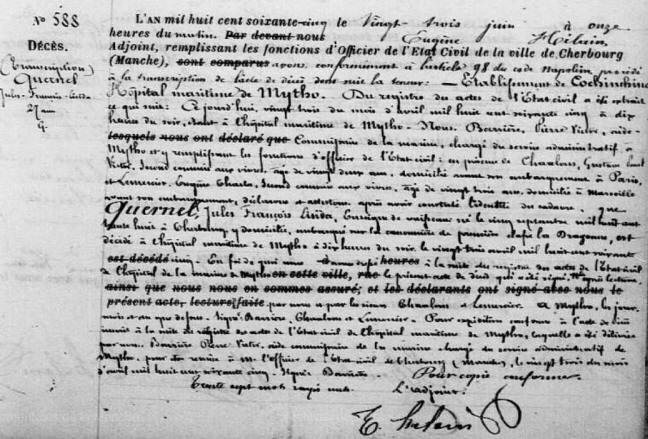 No 588
DÉCÈS.
(Transcription)
Quernel
Jules François
27 juin
L'AN mil huit cent soixante-cinq le vingt trois juin à onze
heures du matin. Par devant nous Eugène Hélain
Adjoint, remplissant les fonctions d'Officier de l'Etat Civil de la ville de Cherbourg
(Manche), sont comparus avons, conformément à l'article 98 du code Napoléon, procédé
à la transcription de l'acte de décès dont suit la teneur: — Etablissement de Cochinchine
Hôpital maritime de Mytho. Du registre des actes de l'Etat civil a été extrait
ce qui suit: Aujourd'hui, vingt trois du mois d'avril mil huit cent soixante cinq à dix
heures du soir, à l'hôpital maritime de Mytho. Nous, Barrière, Pierre Victor, aide-
lesquels nous ont déclaré que Commissaire de la marine, chargé du service administratif à
Mytho et y remplissant les fonctions d'officier de l'état civil: en présence de Chaulan, Gustave
Victor, second commis aux vivres, âgé de vingt deux ans, domicilié avant son embarquement à Paris,
et Lemercier Eugène Charles, second commis aux vivres, âgé de vingt trois ans, domicilié à Marseille
avant son embarquement, déclarons et attestons après avoir constaté l'identité du cadavre. Que
Quernel, Jules François, Enseigne de vaisseau né le cinq septembre mil huit cent
trente huit à Cherbourg y domicilié, embarqué sur la cannonière de première classe la Dragonne, est
décédé à l'hôpital maritime de Mytho à dix heures du soir, le vingt trois avril mil huit cent soixante
est décédé cinq. En foi de quoi nous heures à la suite du registre des actes de l'état civil
de l'hôpital de la marine à Mytho en cette ville, rue le présent acte
ainsi que nous nous en sommes assuré; et les déclarants ont signé avec nous le
présent acte, lecture faite par nous et par les sieurs Chaulan et Lemercier. A Mytho, les jour,
mois et an que dessus. Signé: Barrière, Chaulan et Lemercier. Pour expédition conforme à l'acte
à la suite du registre des actes de l'Etat civil de l'hôpital maritime de Mytho, laquelle a été délivrée
par nous, Barrière Pierre Victor, aide commissaire de la marine chargé du service administratif de
Mytho, pour être remise à M. l'officier de l'état civil de Cherbourg (Manche), le vingt trois du mois
d'avril mil huit cent soixante cinq. Signé Barrière Pour copie conforme.
Trente sept mots rayés nuls. L'adjoint:
E. Hélain